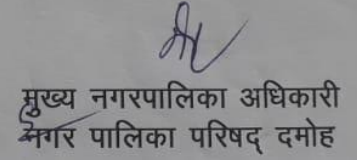 मुख्य नगरपालिका अधिकारी
नगर पालिका परिषद् दमोह